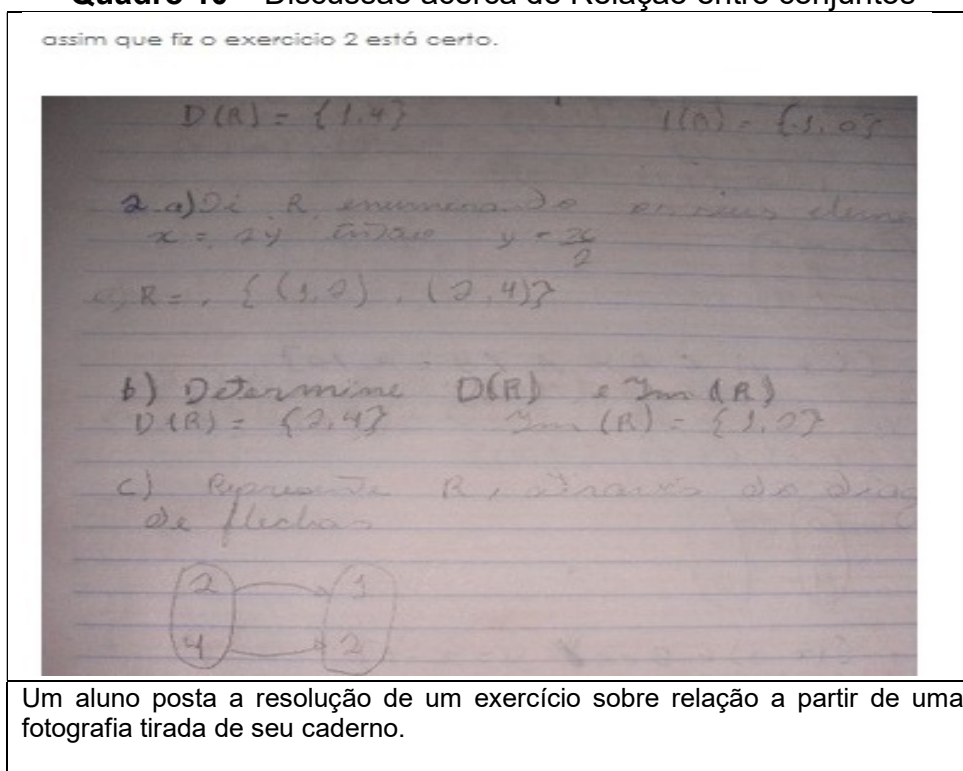 Quadro 10 – Discussão acerca de Relação entre conjuntos
assim que fiz o exercicio 2 está certo.
D(R) = {1,4} I(R) = {1,0}
2.a) R enumerando seus eleme
x = 2y então y = x/2
R = {(1,2), (2,4)}
b) Determine D(R) e Im(R)
D(R) = {2,4} Im(R) = {1,2}
c) Represente R, através do diag
de flechas
2 1
4 2
Um aluno posta a resolução de um exercício sobre relação a partir de uma
fotografia tirada de seu caderno.